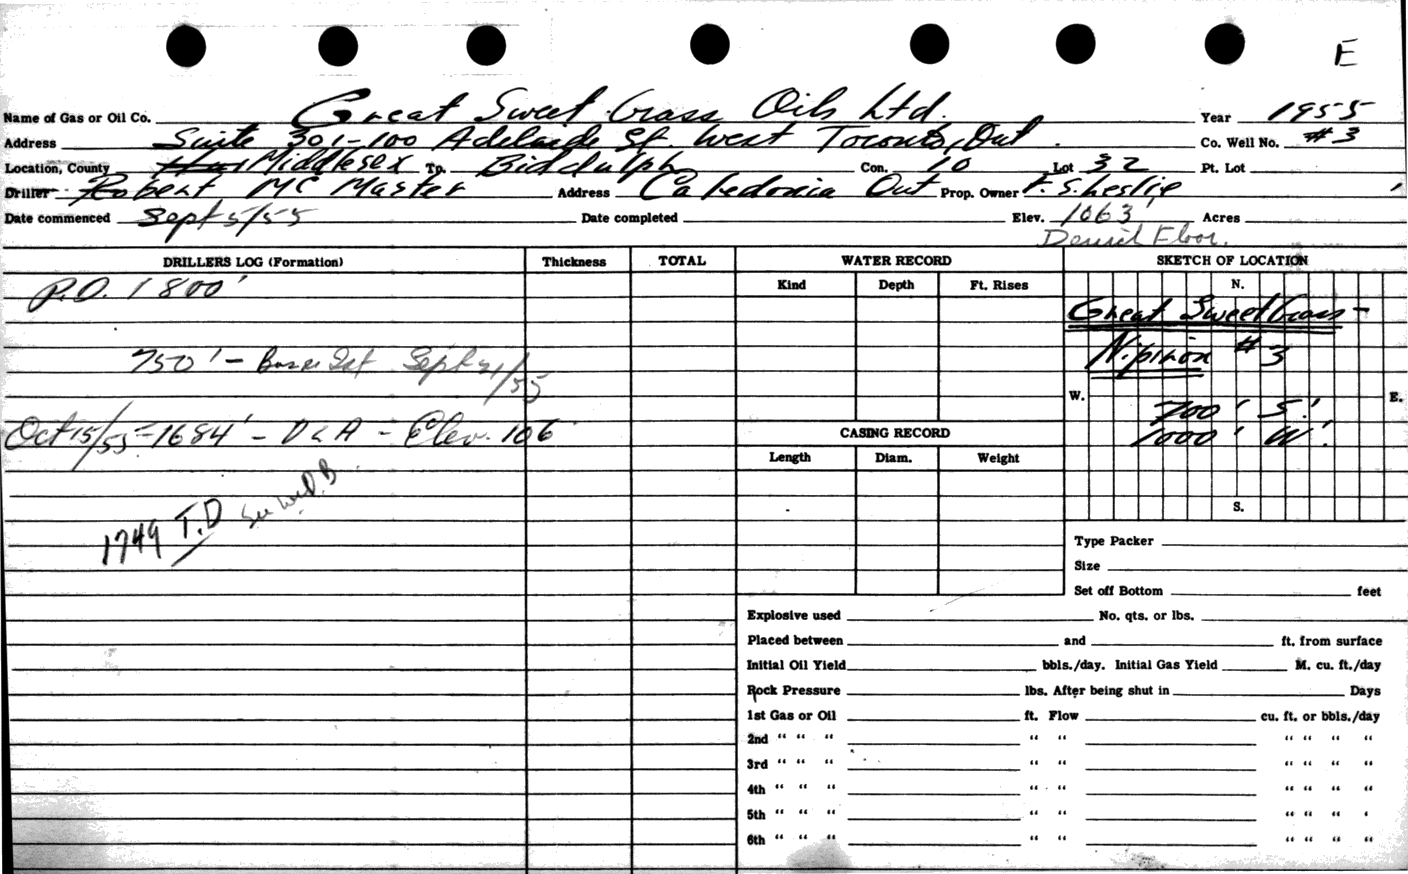 E
Name of Gas or Oil Co. Great Sweet Grass Oils Ltd. Year 1955
Address Suite 301-100 Adelaide St. West Toronto, Ont. Co. Well No. #3
Location, County Middlesex Tp. Biddulph Con. 10 Lot 32 Pt. Lot
Driller Robert McMaster Address Caledonia Ont Prop. Owner F. S. Leslie
Date commenced Sept 5/55 Date completed Elev. 1063' Acres
Derrick Floor.
DRILLERS LOG (Formation) Thickness TOTAL WATER RECORD SKETCH OF LOCATION
P.D. 1800' Kind Depth Ft. Rises N.
Great Sweet Grass-
750' - Sept 21/55 Nipiron #3
W. E.
700' S.'
Oct 15/55 - 1684' - D & A - Elev. 106 CASING RECORD 1000' W'.
Length Diam. Weight
1749 T.D See W.D.B. S.
Type Packer
Size
Set off Bottom feet
Explosive used No. qts. or lbs.
Placed between and ft. from surface
Initial Oil Yield bbls./day. Initial Gas Yield M. cu. ft./day
Rock Pressure lbs. After being shut in Days
1st Gas or Oil ft. Flow cu. ft. or bbls./day
2nd " " " " " " " " "
3rd " " " " " " " " "
4th " " " " " " " " "
5th " " " " " " " " '
6th " " " " " " " " "